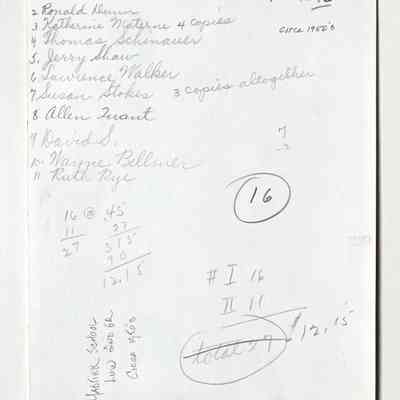 2 Ronald Dunn
3 Katherine Materne 4 copies
circa 1950's
4 Thomas Schinauer
5. Jerry Shaw
6 Lawrence Walker
7 Susan Stokes 3 copies altogether
8 Allen Quant
9 David S.
10. Wayne Bellsner
11 Ruth Rye
7
16
16 @ .45
11 27
27 315
90
12,15
# I 16
II 11
total 27 $12,15
School
Circa